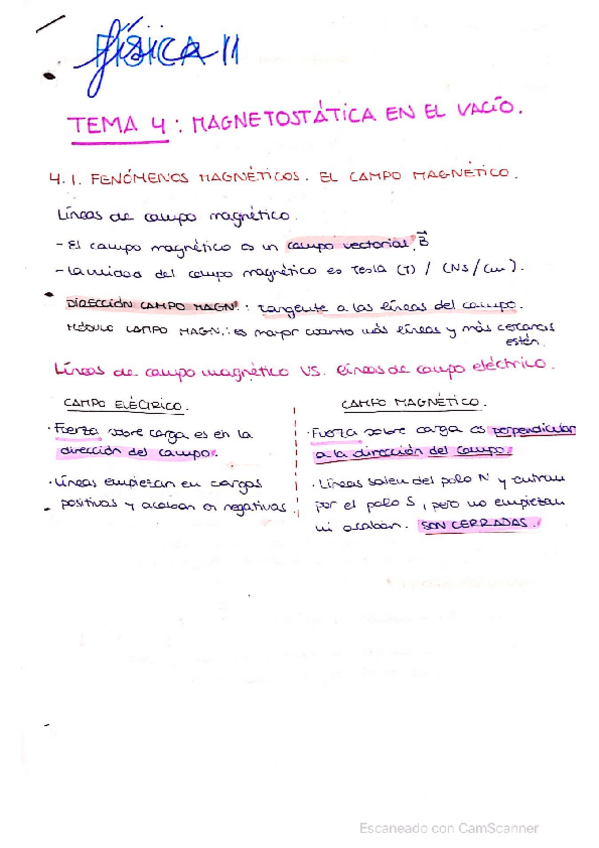 FÍSICA II
TEMA 4: MAGNETOSTÁTICA EN EL VACÍO.
4.1. FENÓMENOS MAGNÉTICOS. EL CAMPO MAGNÉTICO.
Líneas de campo magnético.
- El campo magnético es un campo vectorial, B⃗
- La unidad del campo magnético es Tesla (T) / (NS/Cm).
DIRECCIÓN CAMPO MAGN.: tangente a las líneas del campo.
MÓDULO CAMPO MAGN.: es mayor cuanto más líneas y más cercanas
estén.
Líneas de campo magnético VS. líneas de campo eléctrico.
CAMPO ELÉCTRICO.
· Fuerza sobre carga es en la
dirección del campo.
· Líneas empiezan en cargas
positivas y acaban en negativas.
CAMPO MAGNÉTICO.
· Fuerza sobre carga es perpendicular
a la dirección del campo.
· Líneas salen del polo N y entran
por el polo S, pero no empiezan
ni acaban. SON CERRADAS.
Escaneado con CamScanner